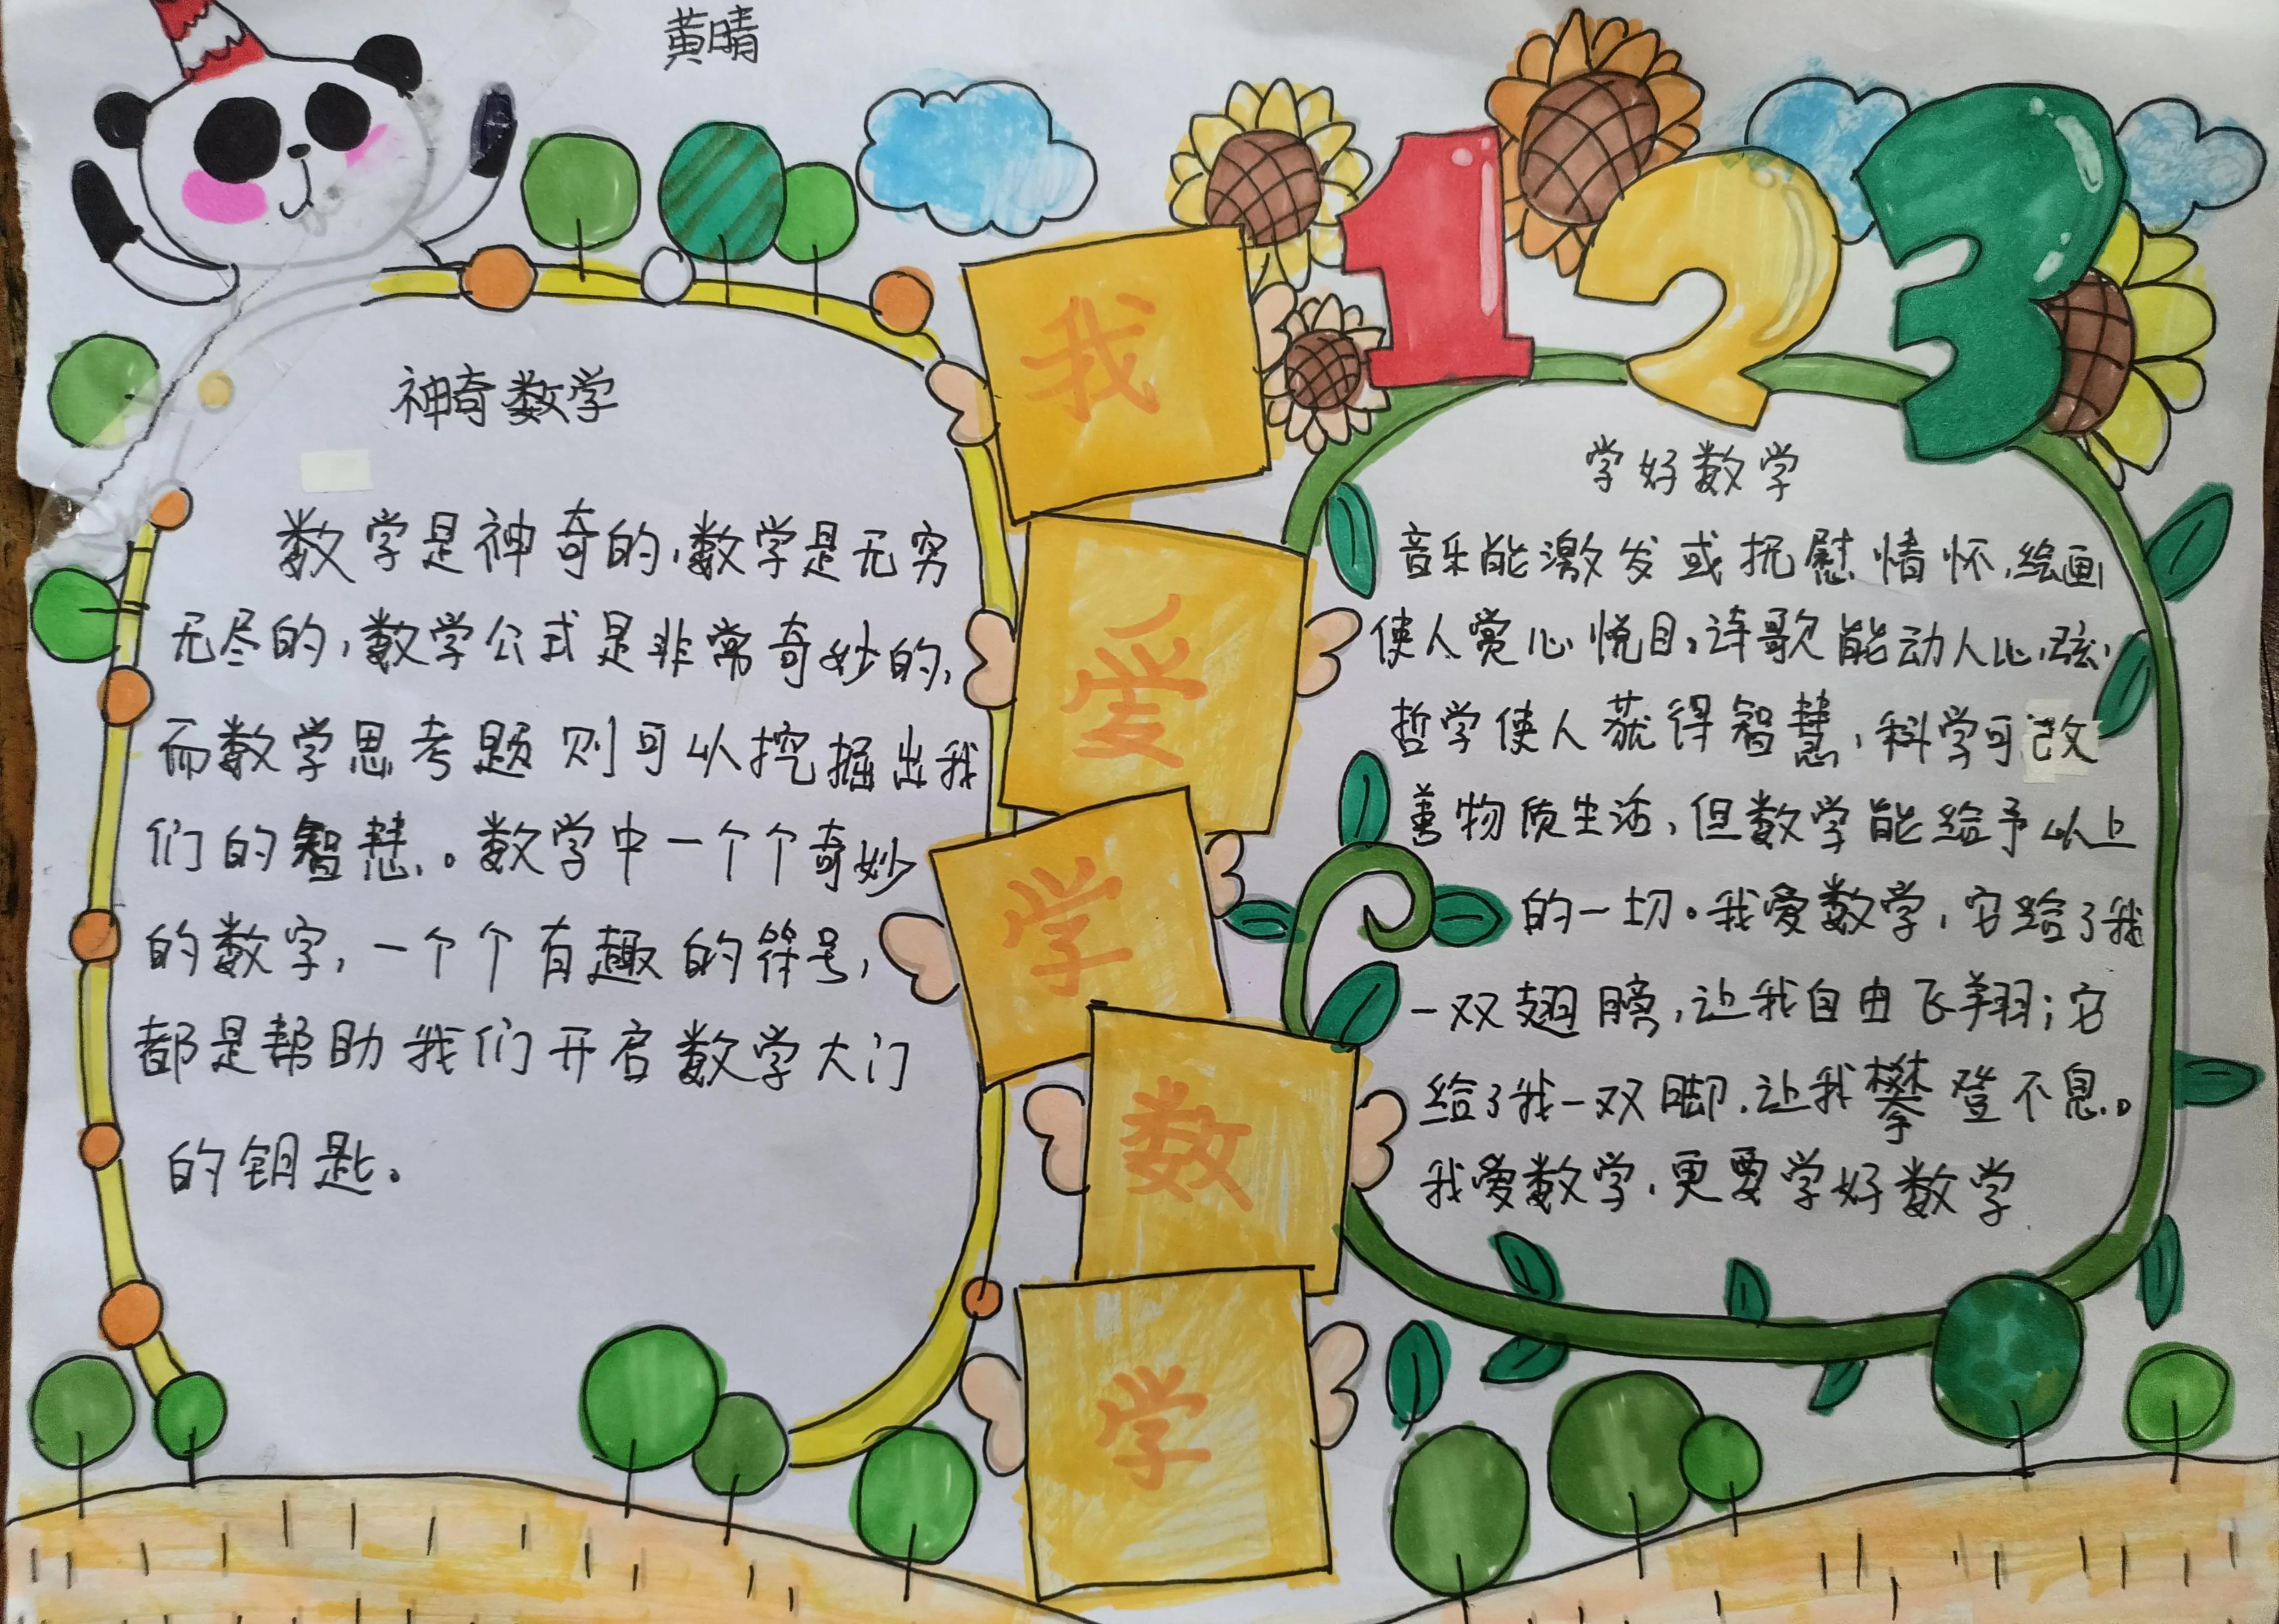 黄晴
神奇数学
数学是神奇的,数学是无穷
无尽的,数学公式是非常奇妙的,
而数学思考题则可以挖掘出我
们的智慧。数学中一个个奇妙
的数字,一个个有趣的符号,
都是帮助我们开启数学大门
的钥匙。
我
爱
学
数
学
123
学好数学
音乐能激发或抚慰情怀,绘画
使人赏心悦目,诗歌能动人心弦,
哲学使人获得智慧,科学可改
善物质生活,但数学能给予以上
的一切。我爱数学,它给了我
一双翅膀,让我自由飞翔;它
给了我一双脚,让我攀登不息。
我爱数学,更要学好数学